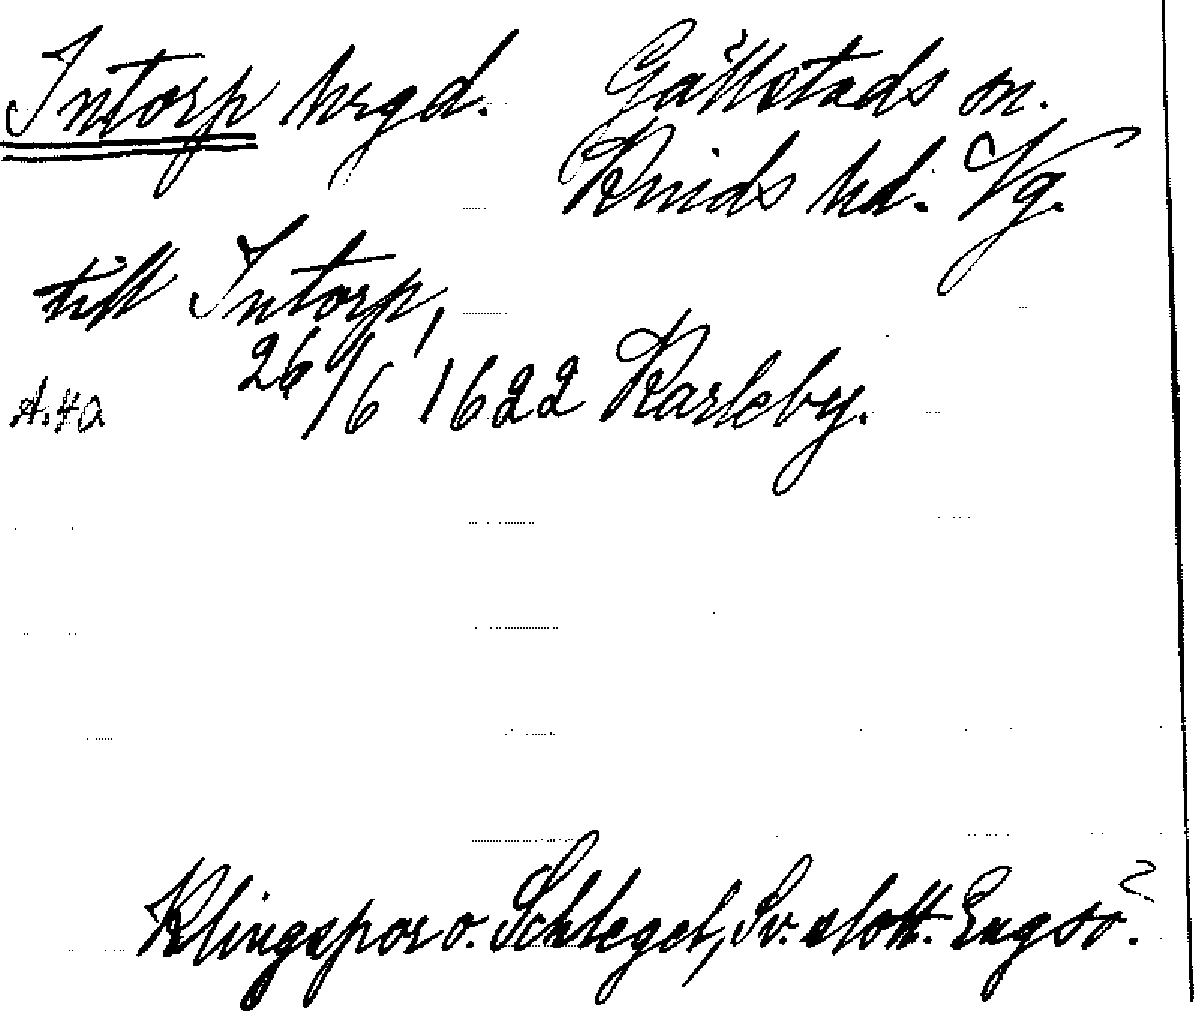 Intorp hrgd. Gällstads sn.
Kinds hd. Vg.
till Intorp,
26/6 1622 Karleby.
Klingspor o. Schlegel, Sv. slott. Engsö.